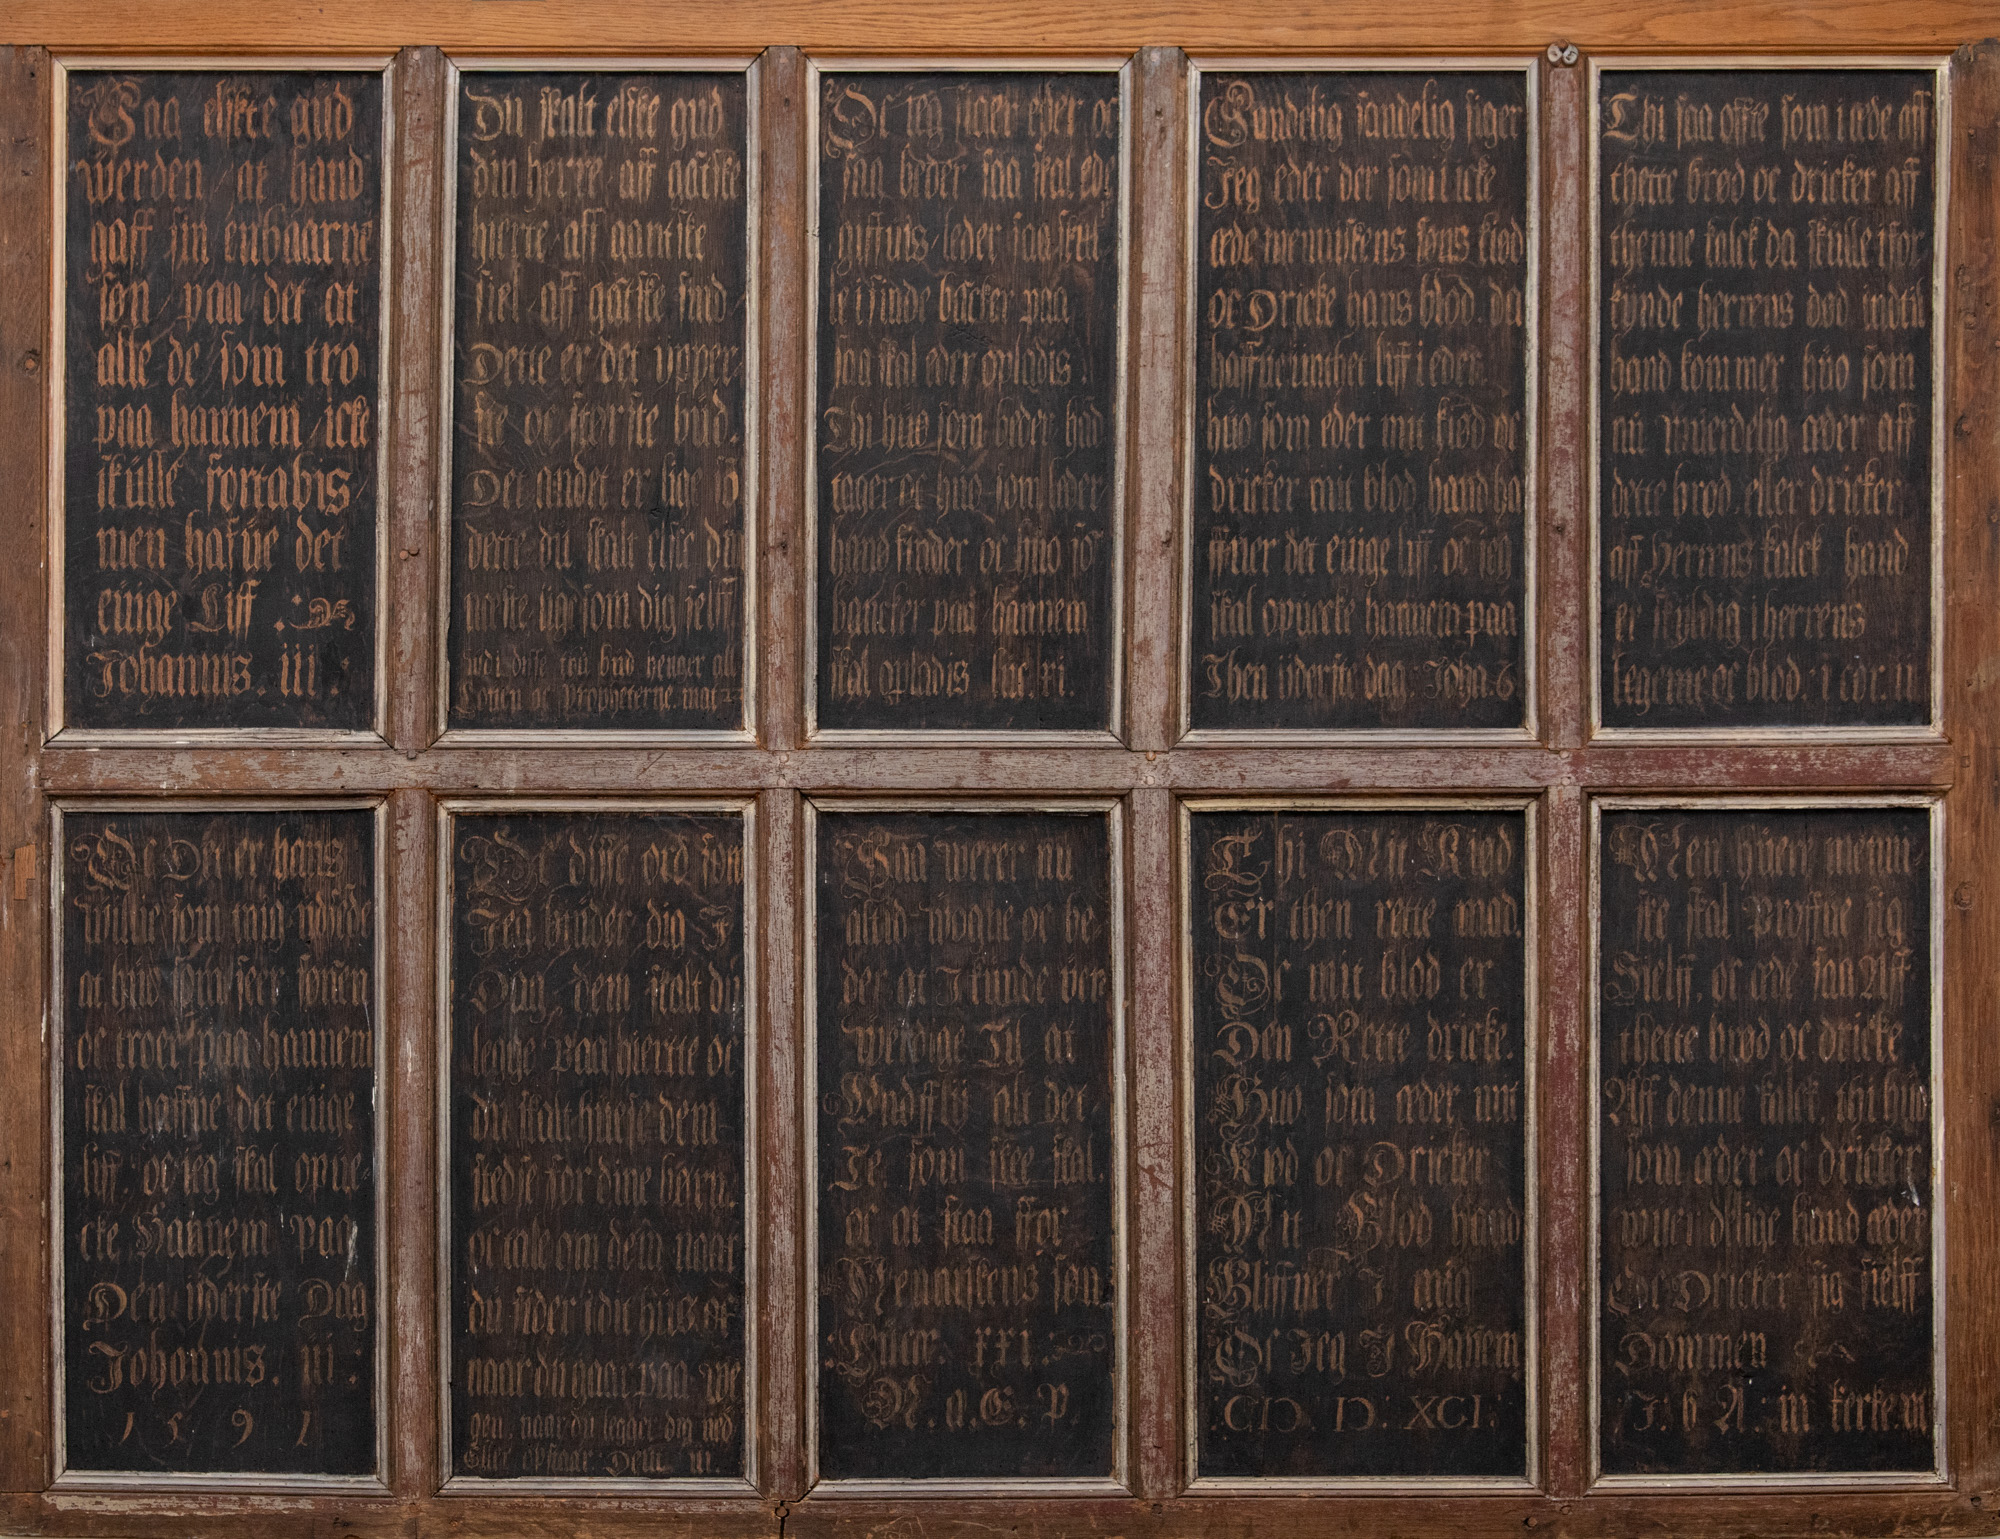 Saa elskte gud
werden / at hand
gaff sin enbaarne
søn / paa det at
alle de / som tro
paa hannem / icke
skülle fortabis /
men hafue det
eüige Liff .:
Johannis. iii :
Du skalt elske gud
din herre / aff gātske
hierte / aff gantske
siel / aff gātske sind /
Dette er det ypper-
ste oc største bud.
Det andet er lige
dette du skalt elske din
næste lige som dig selff
udi disse tou bud henger all
Louen oc Propheterne. mat 22
Oc ieg siger eder oc
saa beder saa skal eder
giffuis / leder saa skul
le i finde bācker paa
saa skal eder opladis.
Thi hüo som beder hād
tager oc hüo som leder
hand finder oc hüo
bancker paa hannem
skal opladis luc. xi.
Sandelig sandelig siger
Jeg eder der som i icke
æde menniskens søns kiød
oc Dricke hans blod. da
haffue i inthet liff i eder.
hüo som eder mit kiød oc
dricker mit blod hand ha
ffuer det eüige liff oc ieg
skal opuecke hannem paa
Then iiderste dag: Joha. 6
Thi saa offte som i æde aff
thette brød oc dricker aff
thenne kalck da skülle i for
kynde herrens død indtil
hand kommer hüo som
nu wuerdelig æder aff
dette brød eller dricker
aff Herrens kalck hand
er skyldig i herrens
legeme oc blod. 1 cor. 11
Oc Det er hans
willie som mig udsēde
at hüo som seer sønen
oc troer paa hannem
skal haffue det eüige
liff: oc ieg skal opue-
cke Hannem paa
Den iiderste Dag
Johannis. iii :
1591
Oc disse ord som
Jeg büder dig J
Dag, dem skalt du
legge paa hiertte oc
du skalt
stedse for dine børn,
oc tale om dem naar
du sider i dit hüs oc
naar du gaar paa we
gen, naar du legger dig ned
Eller opstaar: Deut
Saa werer nu
altid wogne oc be-
der at J künde ver
werdige Til at
Undffly alt det.
Te som skee skal.
oc at staa ffor
Menniskens søn
Lucæ. xxi :
N. a. E. P
Thi Mit Kiød
Er then rette mad.
Oc mit blod er
Den Rette dricke.
Hüo som æder mit
Kiød oc Dricker
Mit Blod hand
Bliffuer J mig
Oc Jeg J Hānem
:CIↃ IↃ: XCI:
Men huert menni-
ske skal Prøffue sig
Sielff, oc æde saa Aff
thette brød oc dricke
Aff denne kalck thi hüo
som æder oc dricker
wuerdelige hand æder
Oc Dricker sig sielff
Dommen
J: h A: in kerke. m